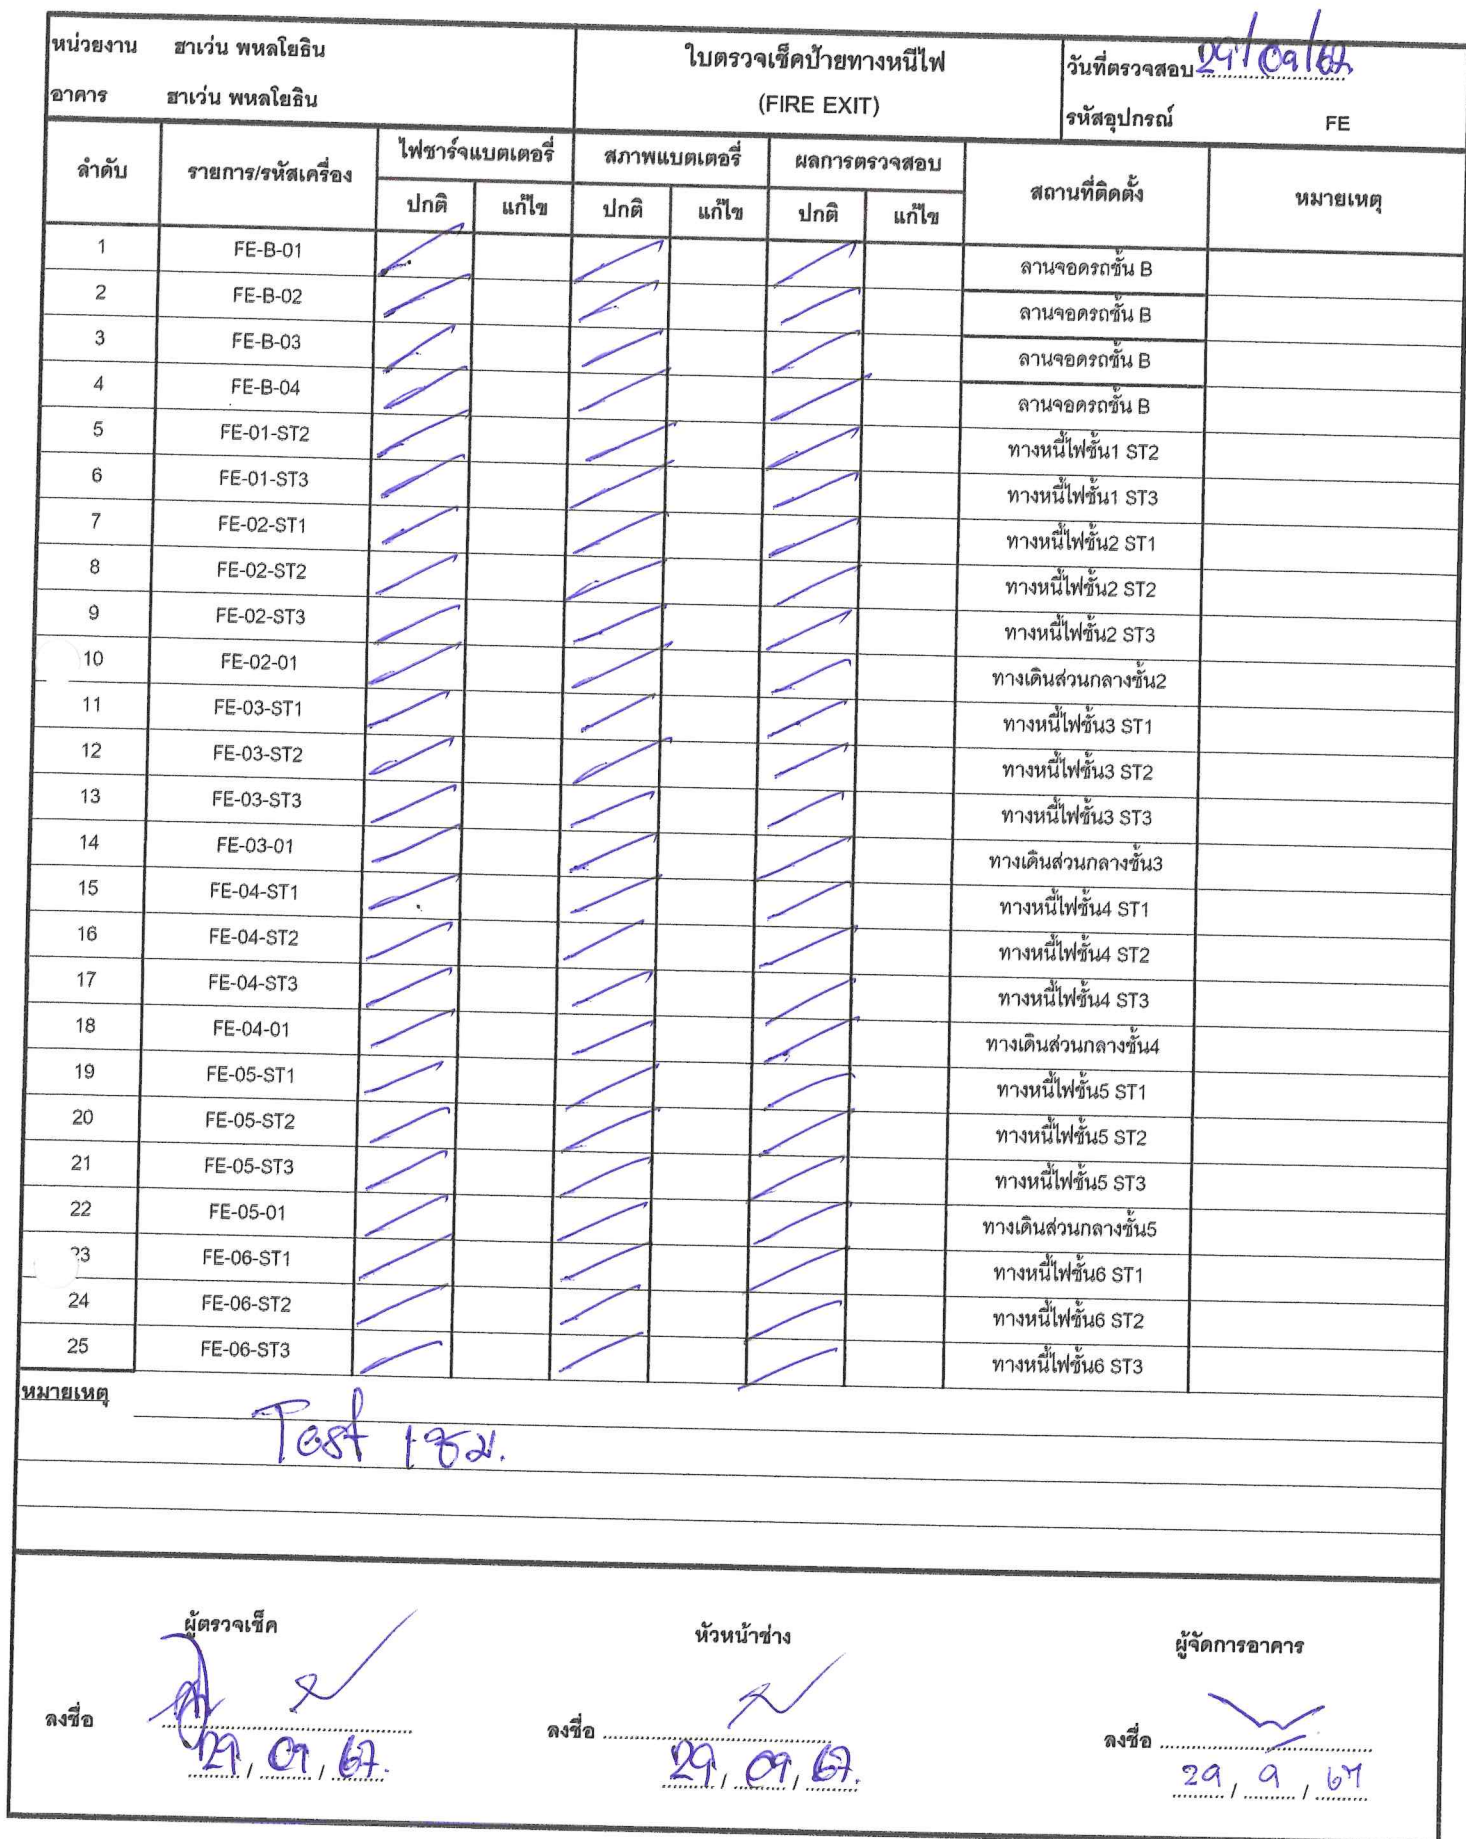 หน่วยงาน ฮาเว่น พหลโยธิน ใบตรวจเช็คป้ายทางหนีไฟ วันที่ตรวจสอบ 29/09/67
อาคาร ฮาเว่น พหลโยธิน (FIRE EXIT) รหัสอุปกรณ์ FE
ลำดับ รายการ/รหัสเครื่อง ไฟชาร์จแบตเตอรี่ สภาพแบตเตอรี่ ผลการตรวจสอบ สถานที่ติดตั้ง หมายเหตุ
ปกติ แก้ไข ปกติ แก้ไข ปกติ แก้ไข
1 FE-B-01 ลานจอดรถชั้น B
2 FE-B-02 ลานจอดรถชั้น B
3 FE-B-03 ลานจอดรถชั้น B
4 FE-B-04 ลานจอดรถชั้น B
5 FE-01-ST2 ทางหนี้ไฟชั้น1 ST2
6 FE-01-ST3 ทางหนี้ไฟชั้น1 ST3
7 FE-02-ST1 ทางหนี้ไฟชั้น2 ST1
8 FE-02-ST2 ทางหนี้ไฟชั้น2 ST2
9 FE-02-ST3 ทางหนี้ไฟชั้น2 ST3
10 FE-02-01 ทางเดินส่วนกลางชั้น2
11 FE-03-ST1 ทางหนี้ไฟชั้น3 ST1
12 FE-03-ST2 ทางหนี้ไฟชั้น3 ST2
13 FE-03-ST3 ทางหนี้ไฟชั้น3 ST3
14 FE-03-01 ทางเดินส่วนกลางชั้น3
15 FE-04-ST1 ทางหนี้ไฟชั้น4 ST1
16 FE-04-ST2 ทางหนี้ไฟชั้น4 ST2
17 FE-04-ST3 ทางหนี้ไฟชั้น4 ST3
18 FE-04-01 ทางเดินส่วนกลางชั้น4
19 FE-05-ST1 ทางหนี้ไฟชั้น5 ST1
20 FE-05-ST2 ทางหนี้ไฟชั้น5 ST2
21 FE-05-ST3 ทางหนี้ไฟชั้น5 ST3
22 FE-05-01 ทางเดินส่วนกลางชั้น5
23 FE-06-ST1 ทางหนี้ไฟชั้น6 ST1
24 FE-06-ST2 ทางหนี้ไฟชั้น6 ST2
25 FE-06-ST3 ทางหนี้ไฟชั้น6 ST3
หมายเหตุ
Test 1 ชม.
ผู้ตรวจเช็ค หัวหน้าช่าง ผู้จัดการอาคาร
ลงชื่อ ลงชื่อ ลงชื่อ
29, 09, 67. 29, 09, 67. 29, 9, 67